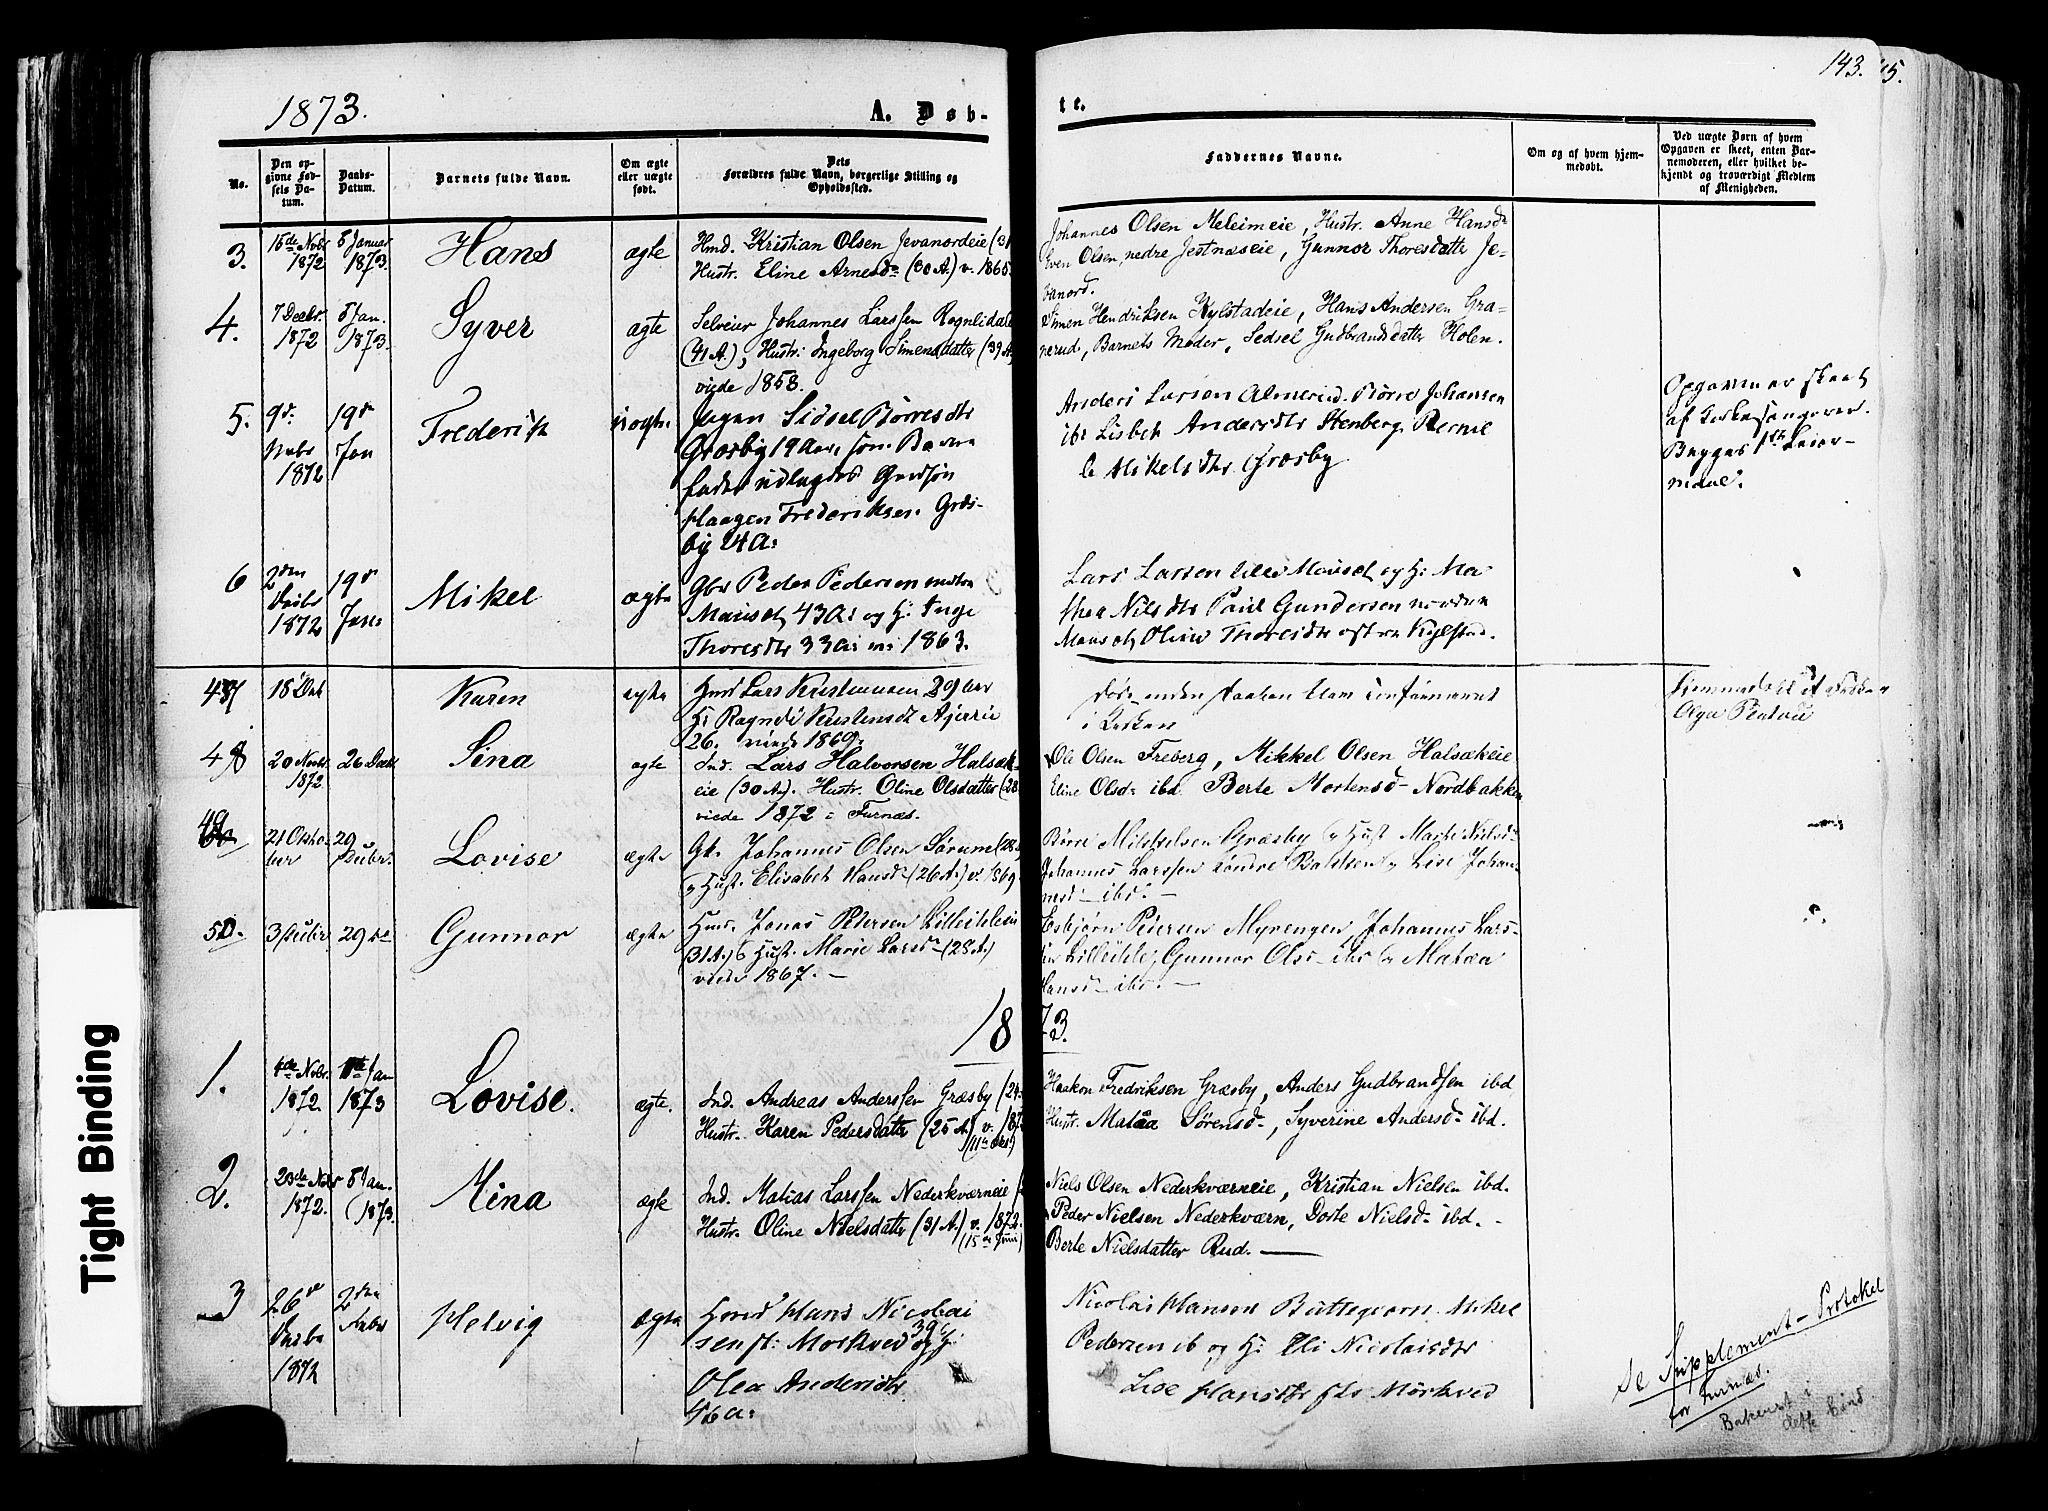 143. 15.
1873.
A. Døb-
te.
No.
Den op-
givne Fød-
sels Da-
tum.
Daabs-
Datum.
Barnets fulde Navn.
Om ægte
eller uægte
født.
Dets
Forældres fulde Navn, borgerlige Stilling og
Opholdssted.
Faddernes Navne.
Om og af hvem hjem-
medøbt.
Ved uægte Børn af hvem
Opgaven er skeet, enten Bar-
nemoderen, eller hvilket be-
kjendt og troværdigt Medlem
af Menigheden.
3.
15de Novbr
1872
5 Januar
1873.
Hans
ægte
Hmd. Kristian Olsen Jevanordeie (31
Hustr. Eline Arnesd. (30 A.) v. 1865.
Johannes Olsen Meleimeie, Hustr. Anne Hansd.
Even Olsen, nedre Jestnæseie, Gunnor Thoresdatte Je-
vanord.
4.
7 Decbr.
1872
5 Jan.
1873.
Syver
ægte
Selveier Johannes Larssen Rognlidalen
(41 A.), Hustr. Ingeborg Simensdatter (39 A.)
viede 1858.
Simen Hendriksen Kylstadeie, Hans Andersen Gra-
nerud, Barnets Moder, Sedsel Gudbrandsdatte Holen.
5.
9d.
Nvbr
1872
19d
Jan
Frederik
uægte.
Pigen Sidsel Børresdtr
Græsby 19 Aar, som Barne
fader udlagdes Gaardsøn
Haagen Frederiksen Græs-
by 24 A:
Anders Larsen Almerud. Børre Johansen
ibd Lisbet Andersdtr Stenberg, Perni l
le Mikelsdtr Græsby
Opgaven er skeet
af Kirkesanger
Bagges 1ste Leier-
maal.
6
2den
Decbr
1872
19d
Jan:
Mikel
ægte
Gbr Peder Pedersen nedre
Mauset 43 A: og H: Inge
Thoresdtr 33 A: v: 1863.
Lars Larsen lille Mauset og H: Ma
thea Nilsdtr Paul Gundersen nordre
Mauset Olive Thoresdtr østre Kylstad.
47
18 Dec
Karen
ægte
Hmd Lars Kristiansen 29 Aar
H: Ragndi Kristensdt Ajerrie
26. viede 1869.
Døde inden Daaben blev confirmeret
i Kirken
Hjemmedøbt af
Olga Platou
48
20 Novbr
1872
26 Decbr
Sina
ægte
Ind. Lars Halvorsen Halsæk-
eie (30 A). Hustr. Oline Olsdatter (28
viede 1872 i Furnæs.
Ole Olsen Freberg, Mikkel Olsen Halsækeie
Eline Olsd. ibd. Berte Mortensd. Nordbakken
49
21 Octo-
ber
29
Decbr.
Lovise
ægte
Gb. Johannes Olsen Sørum (28
og Hust. Elisabeth Hansd. (26 A.) v. 1869
Børre Mikkelsen Græsby og Hust Marthe Nielsd.
Johannes Larssen søndre Bakken og Lise Johan-
nesd. ibd.
50.
3 Decbr
29 de
Gunnor
ægte
Hmd. Jonas Petersen Lillehleeie
(31 A.) og Hust. Marie Larsd. (28 A.)
viede 1867.
Esbjørn Petersen Myrengen, Johannes Lars-
sen Lillehle, Gunnor Olsd. ibd og Matea
Hansd. ibd.
1873.
1.
4de Novbr.
1872.
1ste Jan
1873
Lovise.
ægte.
Ind. Andreas Anderssen Græsby (24
Hustr. Karen Pedersdatter (25 A.) v. 187
Haakon Fredriksen Græsby, Anders Gudbrandsen ibd
Hustr. Matea Sørensd., Syverine Andersd. ibd.
2.
20de Novbr
1872.
5 Jan.
1873.
Mina
ægte
Ind. Matias Larssen Nederkværneie
Hustr. Oline Nielsdatter (31 A.) v. 1872.
(15de Juni)
Niels Olsen Nederkværneie, Kristian Nielsen ibd.
Peder Nielsen Nederkværn, Dorte Nielsd. ibd.
Berte Nielsdatter Rud.
3
26d
Decbr
1872
2den
Febr
Helvig
ægte
Hmd Hans Nicolai
sen f: Mørkved 39 og H:
Olea Andersdtr
46 A:
Nicolai Hansen Butteqvern. Mikel
Pedersen ib og H: Eli Nicolaisdtr
Lise Hansdtr Mørkved
Se Supplement-Protokol
for Furnæs.
Bakerst i
dette bind
Tight Binding